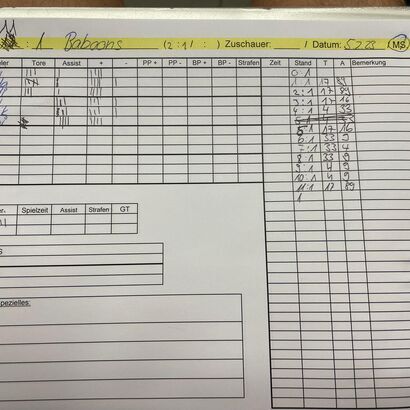 : 1 Baboons (2:1/ : ) Zuschauer: ___ / Datum: 5.2.23 (MS
eler Tore Assist + - PP + PP - BP + BP - Strafen Zeit Stand T A Bemerkung
0:1
1:1 17 89
2:1 17 89
3:1 17 16
4:1 4 33
5:1 17 16
6:1 33 9
7:1 33 4
8:1 33 9
9:1 4 9
10:1 4 9
11:1 17 89
1
er- Spielzeit Assist Strafen GT
S
pezielles: